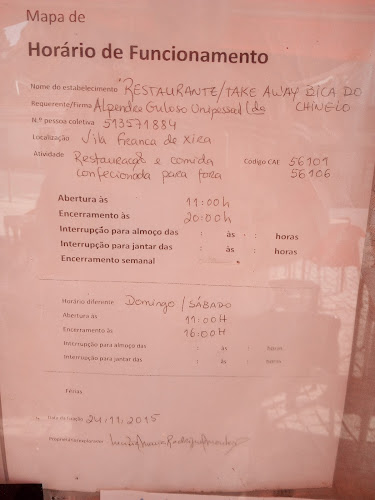 Mapa de
Horário de Funcionamento
Nome do estabelecimento "RESTAURANTE/TAKE AWAY BICA DO
CHINELO
Requerente/Firma Alpendre Guloso Unipessoal Lda
N.º pessoa coletiva 513571884
Localização Vila Franca de Xira
Atividade Restauração e comida
confecionada para fora
Código CAE 56101
56106
Abertura às 11:00h
Encerramento às 20:00h
Interrupção para almoço das : às : horas
Interrupção para jantar das : às : horas
Encerramento semanal
Horário diferente Domingo / SÁBADO
Abertura às 11:00H
Encerramento às 16:00H
Interrupção para almoço das : às : horas
Interrupção para jantar das : às : horas
Férias
Data de fixação 24/11/2015